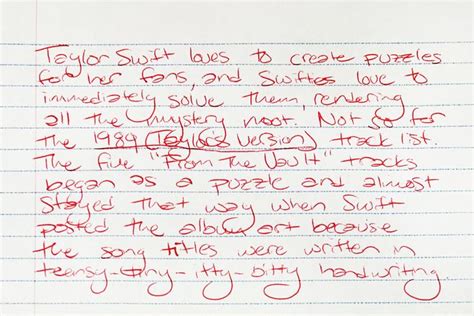 Taylor Swift loves to create puzzles
for her fans, and Swifties love to
immediately solve them, rendering
all the mystery moot. Not so for
the 1989 (Taylor's Version) track list.
The five "From The Vault" tracks
began as a puzzle and almost
stayed that way when Swift
posted the album art because
the song titles were written in
teensy-tiny-itty-bitty handwriting